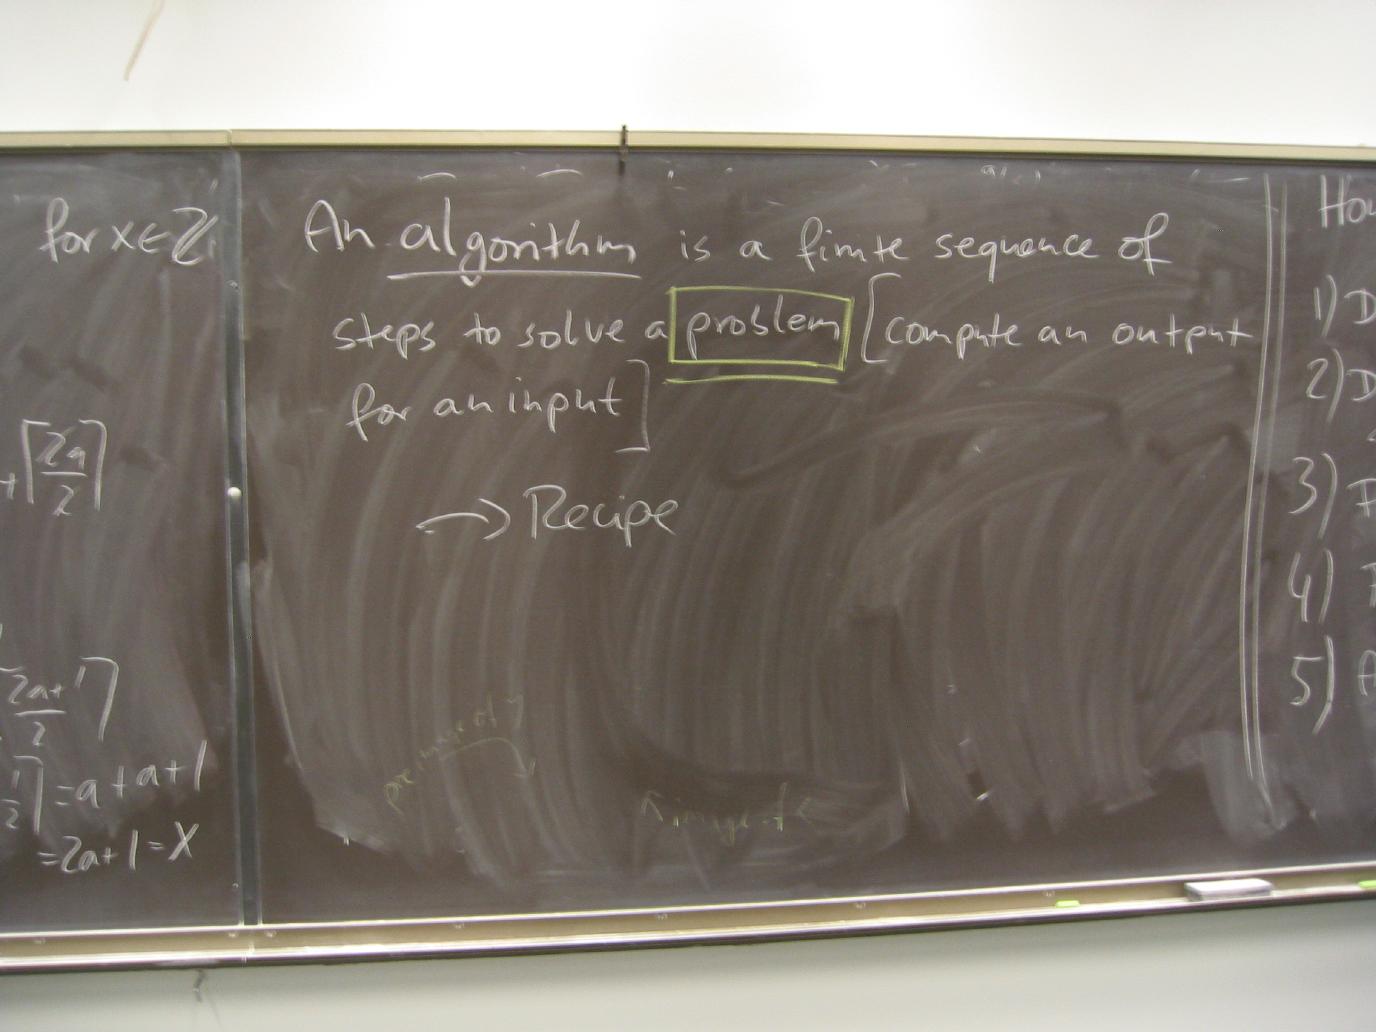 for x ∈ ℤ
+⌈2a/2⌉
2a+1/2⌉
1/2⌉ = a + a + 1
= 2a + 1 = X
An algorithm is a finite sequence of
steps to solve a problem [compute an output
for an input]
→ Recipe
preimage of
image of
1) D
2) D
3)
4)
5) A